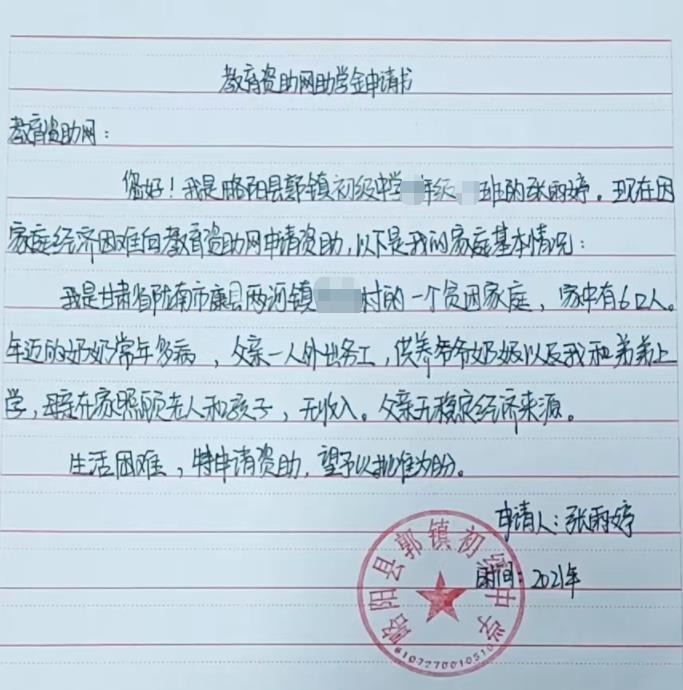 教育资助网助学金申请书
教育资助网：
您好！我是略阳县郭镇初级中学 年级 班的张雨婷。现在因
家庭经济困难向教育资助网申请资助，以下是我的家庭基本情况：
我是甘肃省陇南市康县两河镇 村的一个贫困家庭，家中有6口人。
年迈的奶奶常年多病，父亲一人外出务工，供养爷爷奶奶以及我和弟弟上
学，母亲在家照顾老人和孩子，无收入。父亲无稳定经济来源。
生活困难，特申请资助，望予以批准为盼。
申请人：张雨婷
时间：2021年
略阳县郭镇初级中学
6107270010510